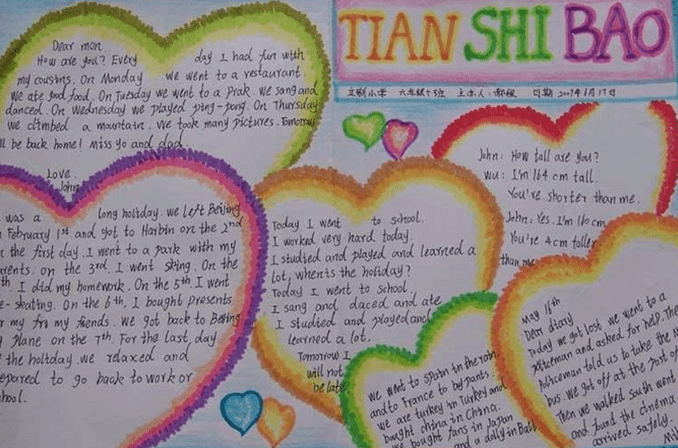 TIAN SHI BAO
六年级十班 主办人: 日期 2007年6月17日
Dear mon
How are you? Every day I had fun with
my cousins. On Monday we went to a restaurant.
We ate good food. On Tuesday we went to a prak. We sang and
danced. On Wednesday we played ping-pong. On Thursday
we climbed a mountain. We took many pictures. Tomorrow
ll be back home! Miss yo and dad.
Love.
John
was a long holiday. we left Beijing
February 1st and got to Harbin on the 2nd
the first day. I went to a park with my
rents. on the 3rd I went sking. On the
th I did my homework. On the 5th I went
e-skating. On the 6th, I bought presents
r my fri my friends. we got back to Beijing
plane on the 7th. For the last day
the holiday we rdaxed and
epared to go back to work or
hool.
Today I went to school.
I worked very hard today.
I studied and played and learned a
lot, when's the holiday?
Today I went to school
I sang and daced and ate
I studied and played and
learned a lot.
Tomorrow I
will not
be late
John: How tall are you?
wu: I'm 164 cm tall.
You're shorter than me.
John: Yes. I'm 160 cm
You're 4 cm taller
than me
We went to spain in the rain
and to France to buy pants
we are turkey in Turkey and
bught china in China.
we bought fans in Japan
and a dolly in Bali
May 16th
Dear diary
Today we got lost. we went to a
policeman and asked for help. The
policeman told us to take the
bus. we got off at the post of
Then we walked south went
and fund the cinema
arrived safely.